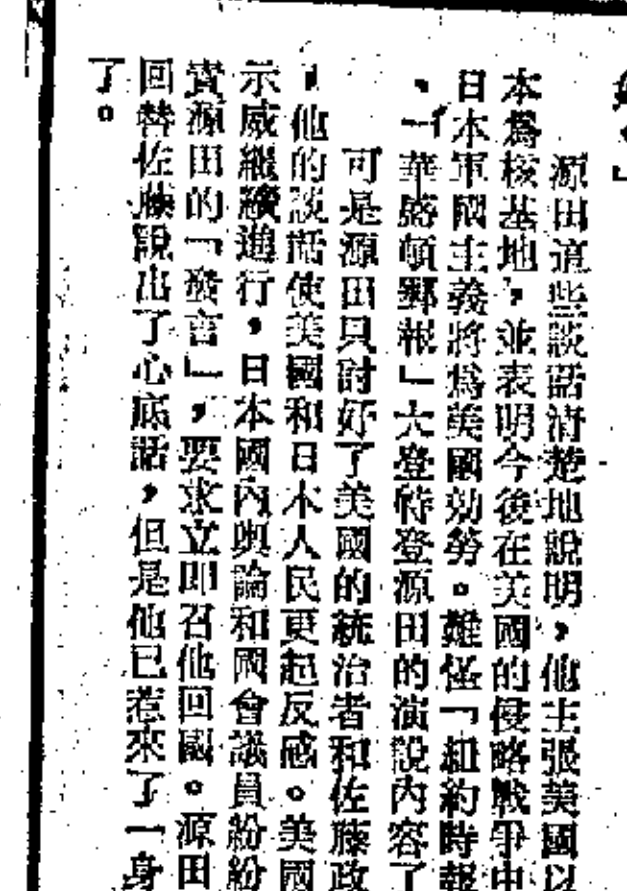 」
源田這些談話清楚地說明，他主張美國以
本為核基地，並表明今後在美國的侵略戰爭中
日本軍國主義將為美國効勞。難怪「紐約時報
、「華盛頓郵報」大登特登源田的演說內容了
可是源田只討好了美國的統治者和佐藤政
，他的談話使美國和日本人民更起反感。美國
示威繼續進行，日本國內輿論和國會議員紛紛
責源田的「發言」，要求立即召他回國。源田
回替佐藤說出了心底話，但是他已惹來了一身
了。